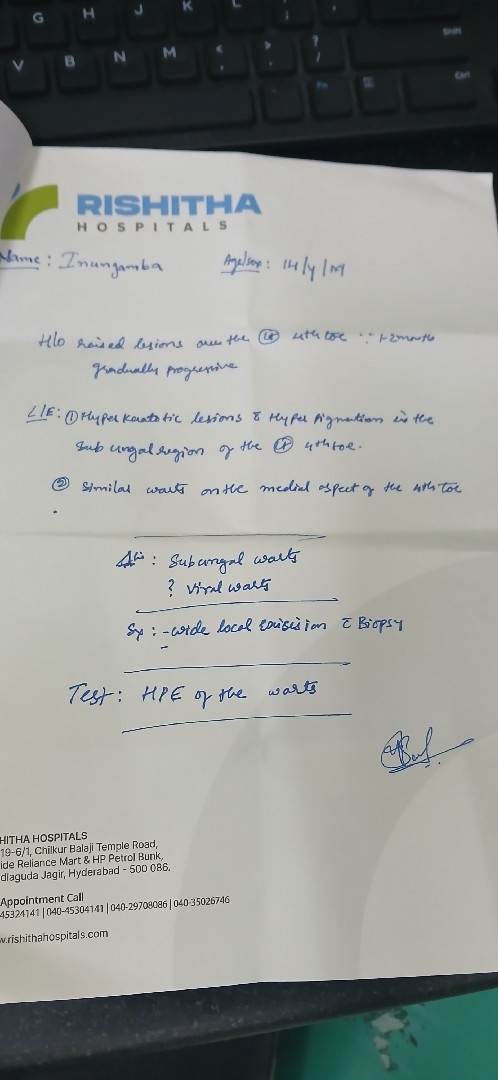 RISHITHA
HOSPITALS
Name : Inungamba Age/sex : 14/y/M
H/o raised lesions over the 4th toe 1-2 months
gradually progressive
L/E: ① Hyper Keratotic lesions & Hyper Pigmation in the
Sub ungal region of the 4th toe.
② Similar warts on the medial aspect of the 4th toe
: Subungal warts
? Viral warts
Sx : - wide local excision c Biopsy
Test : HPE of the warts
HITHA HOSPITALS
19-6/1, Chilkur Balaji Temple Road,
ide Reliance Mart & HP Petrol Bunk,
dlaguda Jagir, Hyderabad - 500 086.
Appointment Call
45324141 | 040-45304141 | 040-29708086 | 040-35026746
w.rishithahospitals.com
G H J K L
V B N M
Shift
Ctrl